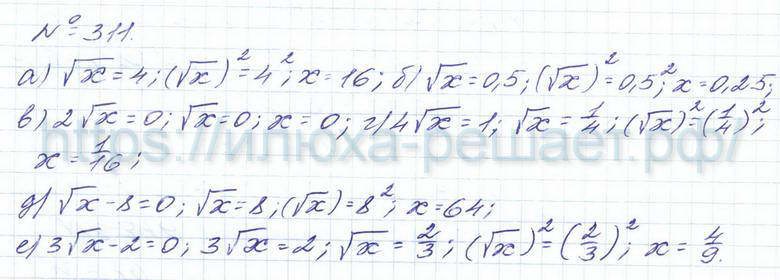 № 311.
а) √x = 4; (√x)² = 4²; x = 16; б) √x = 0,5; (√x)² = 0,5²; x = 0,25;
в) 2√x = 0; √x = 0; x = 0; г) 4√x = 1; √x = 1/4; (√x)² = (1/4)²;
https://илюха-решает.рф/
x = 1/16;
д) √x - 8 = 0; √x = 8; (√x) = 8²; x = 64;
е) 3√x - 2 = 0; 3√x = 2; √x = 2/3; (√x)² = (2/3)²; x = 4/9.